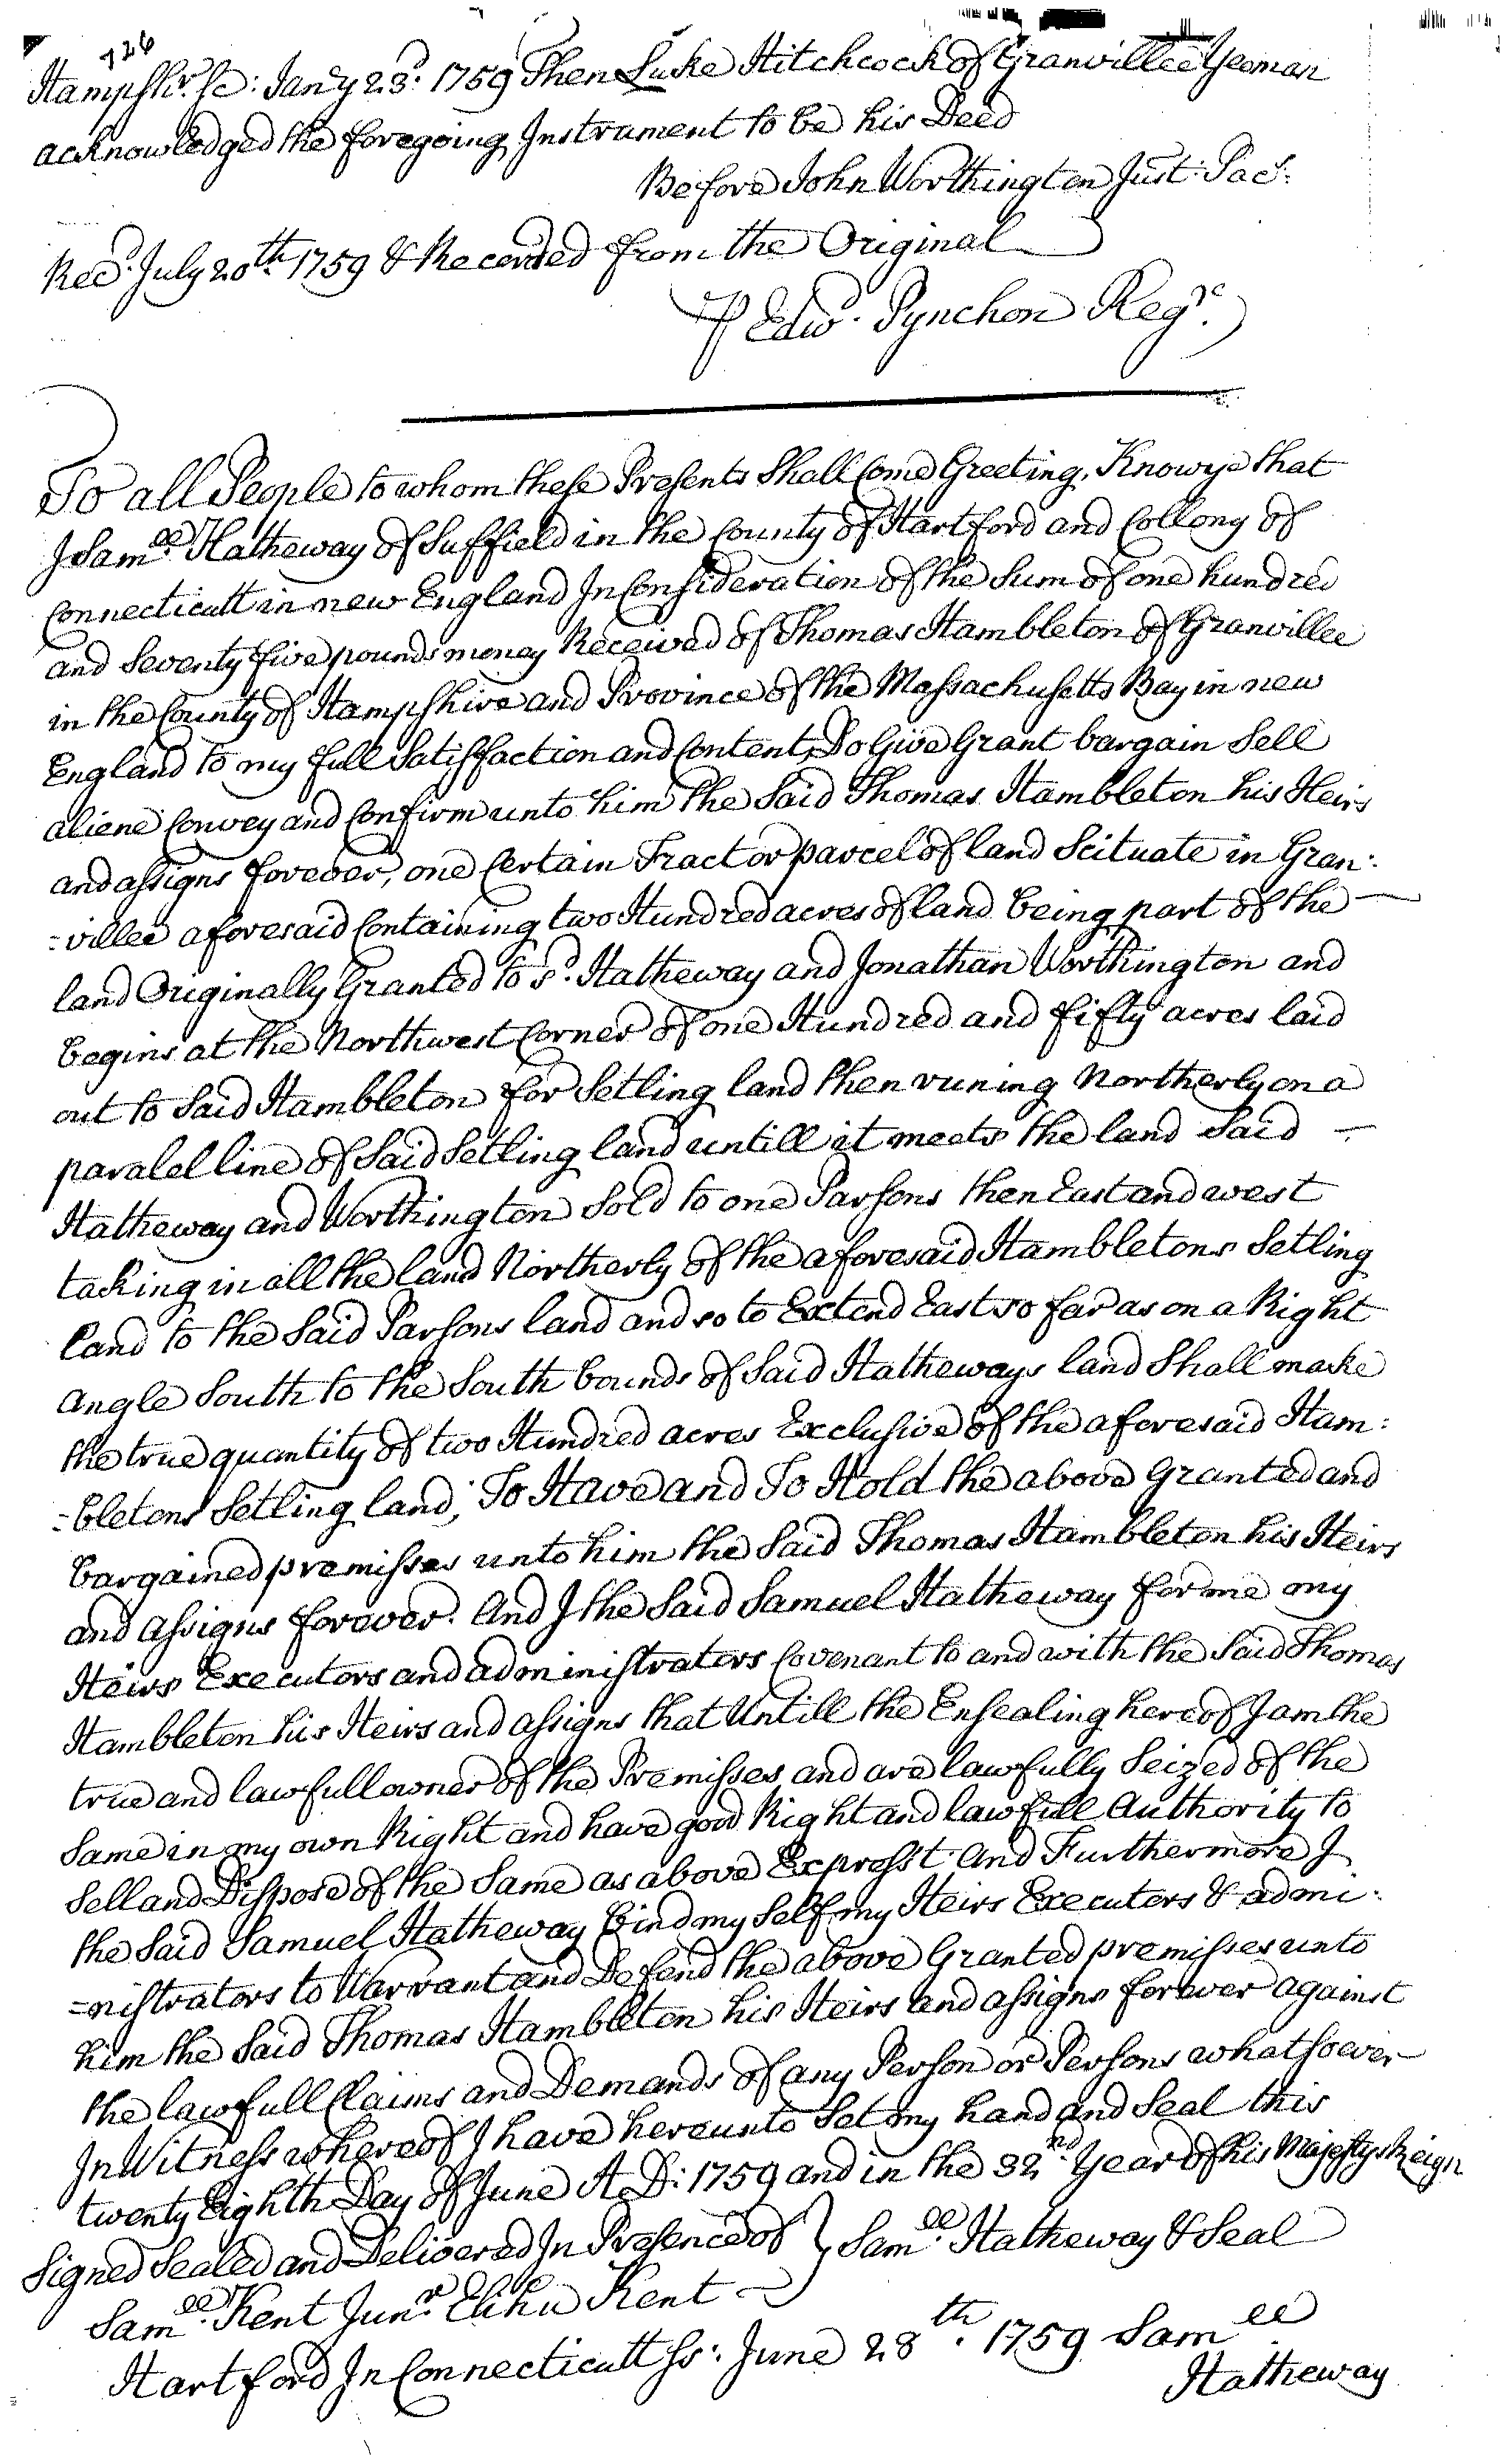 726
Hampshr. sc: Jany 23d. 1759 Then Luke Hitchcock of Granvillee Yeoman
acknowledged the foregoing Instrument to be his Deed
Before John Worthington Just: Pacs.
Recd. July 20th. 1759 & Recorded from the Original
⅌ Edwd. Pynchon Regr.
To all People to whom these Presents Shall Come Greeting, Know ye that
I Samll. Hatheway of Suffield in the County of Hartford and Collony of
Connecticutt in new England In Consideration of the Sum of one hundred
and Seventy five pounds money Received of Thomas Hambleton of Granvillee
in the County of Hampshire and Province of the Massachusetts Bay in new
England to my full Satisfaction and Content, Do Give Grant bargain Sell
aliene Convey and Confirm unto him the Said Thomas Hambleton his Heirs
and assigns forever, one Certain Tract or parcel of land Scituate in Gran:
=villee aforesaid Containing two Hundred acres of land being part of the
land Originally Granted to sd. Hatheway and Jonathan Worthington and
begins at the Northwest Corner of one Hundred and fifty acres laid
out to Said Hambleton for Setling land then runing Northerly on a
paralel line of Said Setling land untill it meets the land Said
Hatheway and Worthington Sold to one Parsons then East and west
taking in all the land Northerly of the aforesaid Hambletons Setling
land to the Said Parsons land and so to Extend East so far as on a Right
angle South to the South bounds of Said Hatheways land Shall make
the true quantity of two Hundred acres Exclusive of the aforesaid Ham:
=bletons Setling land; To Have and To Hold the above Granted and
bargained premisses unto him the Said Thomas Hambleton his Heirs
and assigns forever. And I the Said Samuel Hatheway for me my
Heirs Executors and administrators Covenant to and with the Said Thomas
Hambleton his Heirs and assigns that Untill the Ensealing hereof I am the
true and lawfull owner of the Premisses and are lawfully Seized of the
Same in my own Right and have good Right and lawfull Authority to
Sell and Dispose of the Same as above Expresst And Furthermore I
the Said Samuel Hatheway bind my Self my Heirs Executers & admi:
=nistrators to Warrant and Defend the above Granted premisses unto
him the Said Thomas Hambleton his Heirs and assigns forever against
the lawfull Claims and Demands of any Person or Persons whatsoever
In Witness whereof I have hereunto Set my hand and Seal this
twenty Eighth Day of June A.D: 1759 and in the 32nd. Year of his Majestys Reign
Signed Sealed and Delivered In Presence of } Samll. Hatheway & Seal
Samll. Kent Junr. Elihu Kent
Hartford In Connecticutt Ss: June 28th. 1759 Samll
Hatheway